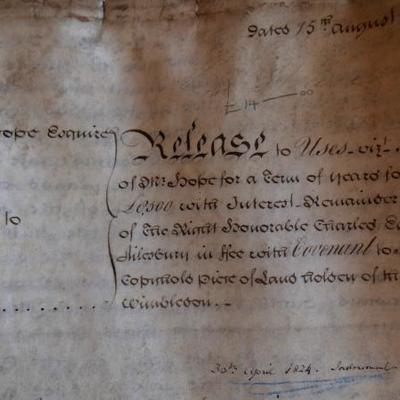 Dated 15th August
£14 — 00
ope Esquire
to
Release to Uses. viz.
of Mr. Hope for a Term of Years
with Interest. Remainder
of The Right Honorable Charles
Ailesbury in ffee with Covenant to
Copihold Piece of Land holden of
Wimbledon. –
30th April 1824.